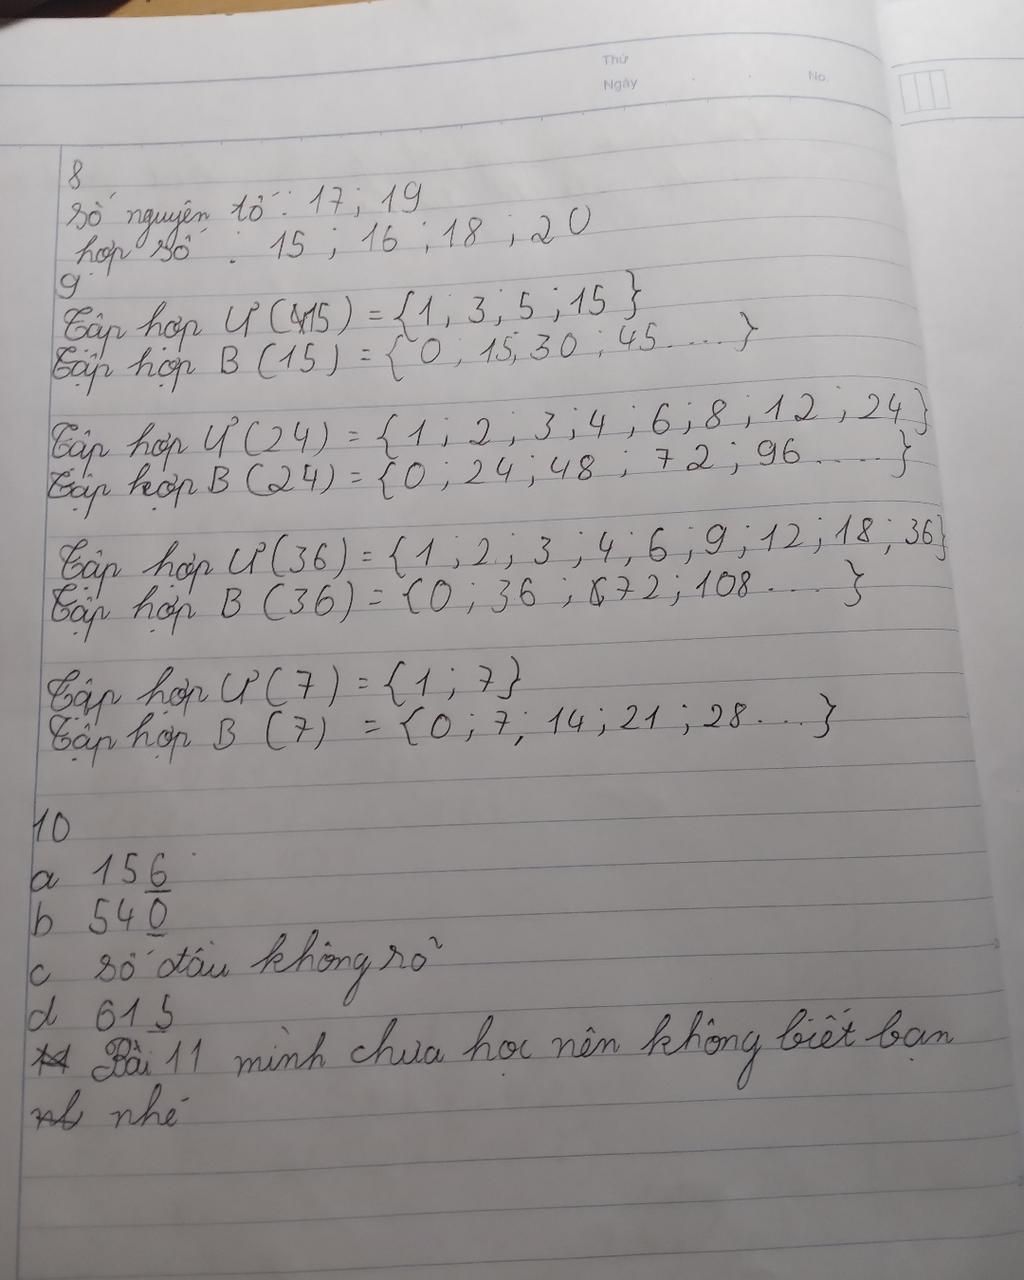 Thứ
Ngày
No.
8
số nguyên tố : 17 ; 19
hợp số : 15 ; 16 ; 18 ; 20
9
Tập hợp Ư (15) = {1 ; 3 ; 5 ; 15 }
Tập hợp B (15) = { 0 ; 15; 30 ; 45 .... }
Tập hợp Ư (24) = { 1 ; 2 ; 3 ; 4 ; 6 ; 8 ; 12 ; 24 }
Tập hợp B (24) = {0 ; 24 ; 48 ; 72 ; 96 ..... }
Tập hợp Ư (36) = { 1 ; 2 ; 3 ; 4 ; 6 ; 9 ; 12 ; 18 ; 36}
Tập hợp B (36) = {0 ; 36 ; 72 ; 108 .... }
Tập hợp Ư (7) = { 1 ; 7 }
Tập hợp B (7) = { 0 ; 7 ; 14 ; 21 ; 28 .... }
10
a 156
b 540
c số đầu không rõ
d 615
Bài 11 mình chưa học nên không biết bạn
nhé